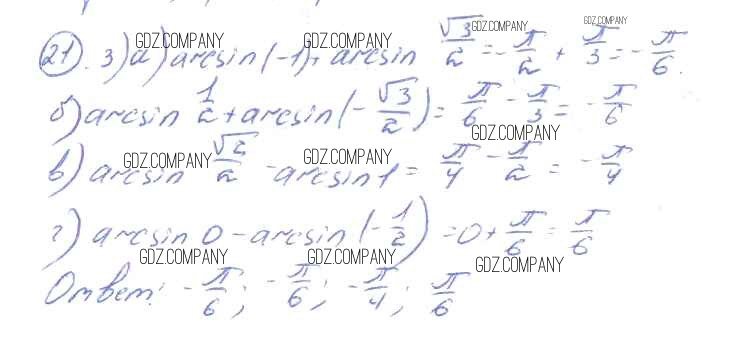 21. 3) а) arcsin(-1) + arcsin √3/2 = -π/2 + π/3 = -π/6.
б) arcsin 1/2 + arcsin(-√3/2) = π/6 - π/3 = -π/6
в) arcsin √2/2 - arcsin 1 = π/4 - π/2 = -π/4
г) arcsin 0 - arcsin(-1/2) = 0 + π/6 = π/6
Ответ: -π/6; -π/6; -π/4; π/6
GDZ.COMPANY
GDZ.COMPANY
GDZ.COMPANY
GDZ.COMPANY
GDZ.COMPANY
GDZ.COMPANY
GDZ.COMPANY
GDZ.COMPANY
GDZ.COMPANY
GDZ.COMPANY